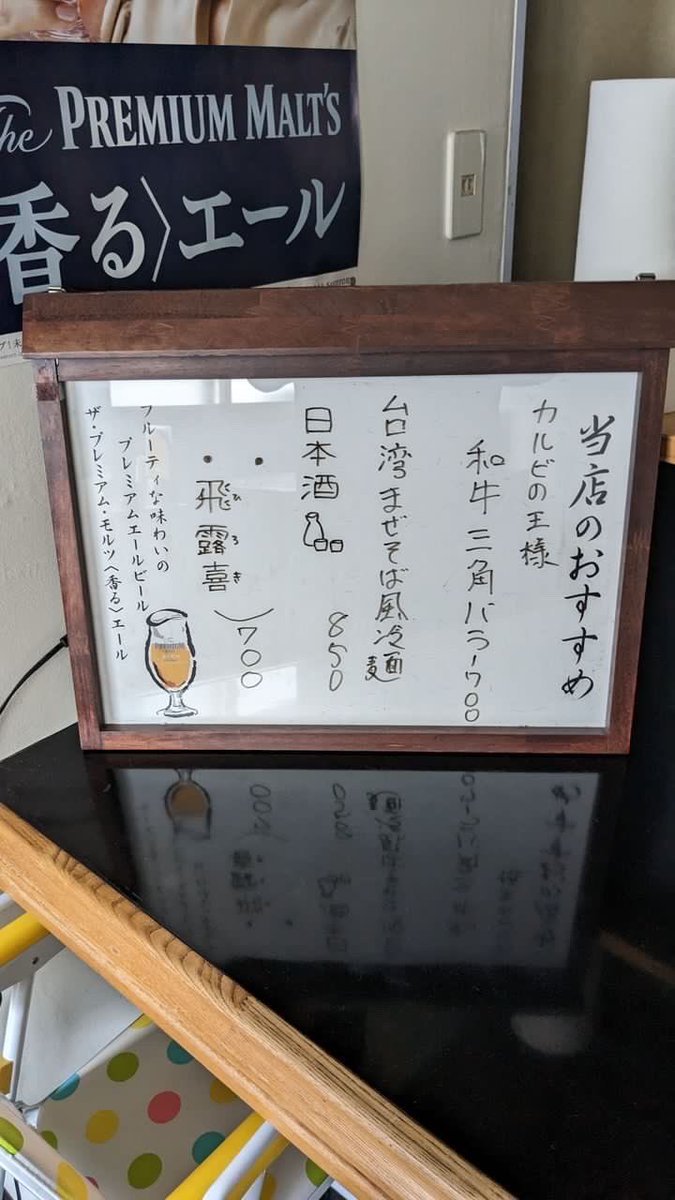 The PREMIUM MALT'S
香る〉エール
当店のおすすめ
カルビの王様
和牛三角バラ1700
台湾まぜそば風冷麺
850
日本酒
・
・飛露喜
ひろき
)700
フルーティな味わいの
プレミアムエールビール
ザ・プレミアム・モルツ〈香る〉エール